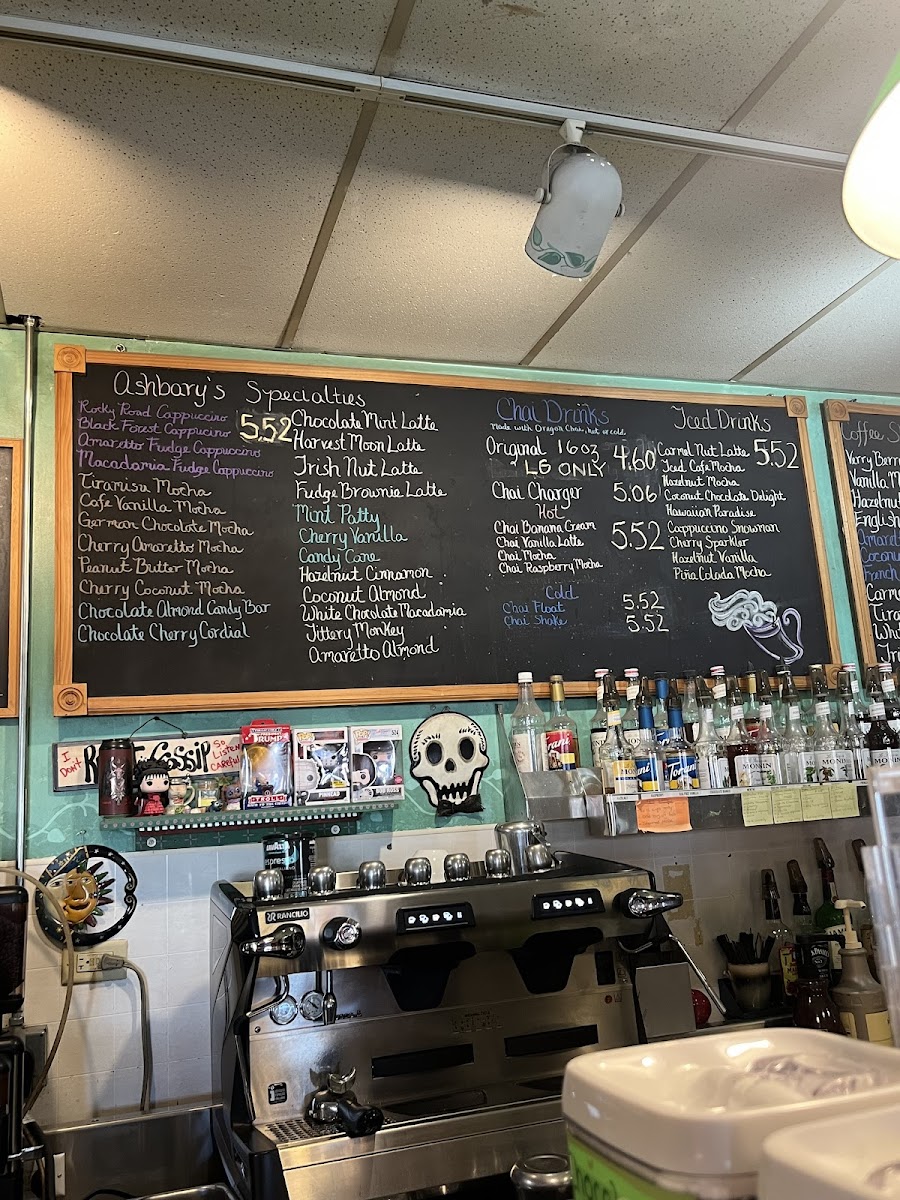 Ashbary's Specialties
Rocky Road Cappuccino
Black Forest Cappucino
Amaretto Fudge Cappuccino
Macadamia Fudge Cappuccino
5.52
Tiramisu Mocha
Cafe Vanilla Mocha
German Chocolate Mocha
Cherry Amaretto Mocha
Peanut Butter Mocha
Cherry Coconut Mocha
Chocolate Almond Candy Bar
Chocolate Cherry Cordial
Chocolate Mint Latte
Harvest Moon Latte
Irish Nut Latte
Fudge Brownie Latte
Mint Patty
Cherry Vanilla
Candy Cane
Hazelnut Cinnamon
Coconut Almond
White Chocolate Macadamia
Jittery Monkey
Amaretto Almond
Chai Drinks
Made with Oregon Chai, hot or cold.
Original 16oz 4.60
LG ONLY
Chai Charger 5.06
Hot
Chai Banana Cream
Chai Vanilla Latte 5.52
Chai Mocha
Chai Raspberry Mocha
Cold
Chai Float 5.52
Chai Shake 5.52
Iced Drinks
Carmel Nut Latte 5.52
Iced Cafe Mocha
Hazelnut Mocha
Coconut Chocolate Delight
Hawaiian Paradise
Cappuccino Snowman
Cherry Sparkler
Hazelnut Vanilla
Pina Colada Mocha
Coffee S
Verry Berr
Vanilla M
Hazelnut
English
Amaret
Coconu
French
Carme
Tira
Whit
Iri
I Don't
Gossip
So Listen Careful
TRUMP
TROLL
PINHEAD
BOB ROSS
524
LAVAZZA
espresso
RANCILIO
Torani
MONIN
MONIN